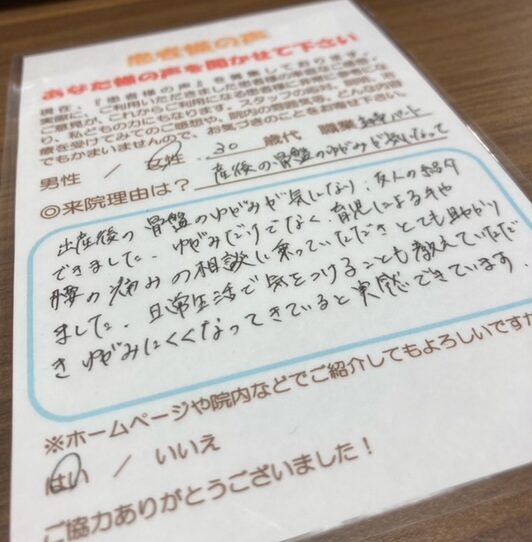 患者様の声
あなた様の声を聞かせて下さい
現在、『患者様の声』を募集しております。
実際に、ご利用いただきました患者様の率直な
ご意見が、これからご利用になる患者様に
り、私どもの力にもなります。スタッフの
療を受けてみてのご感想や、院内の雰囲気等、どんな内容
でもかまいませんので、お気づきのことをお寄せ下さい。
男性 / 女性 30 歳代 職業 パート
◎来院理由は? 産後の骨盤のゆがみが気になって
出産後の骨盤のゆがみが気になり、友人の紹介
できました。ゆがみだけでなく、育児による手や
腰の痛みの相談に乗っていただきとても助かり
ました。日常生活で気をつけることも教えていただ
き ゆがみにくくなってきていると実感できています。
※ホームページや院内などでご紹介してもよろしいですか
はい / いいえ
ご協力ありがとうございました!